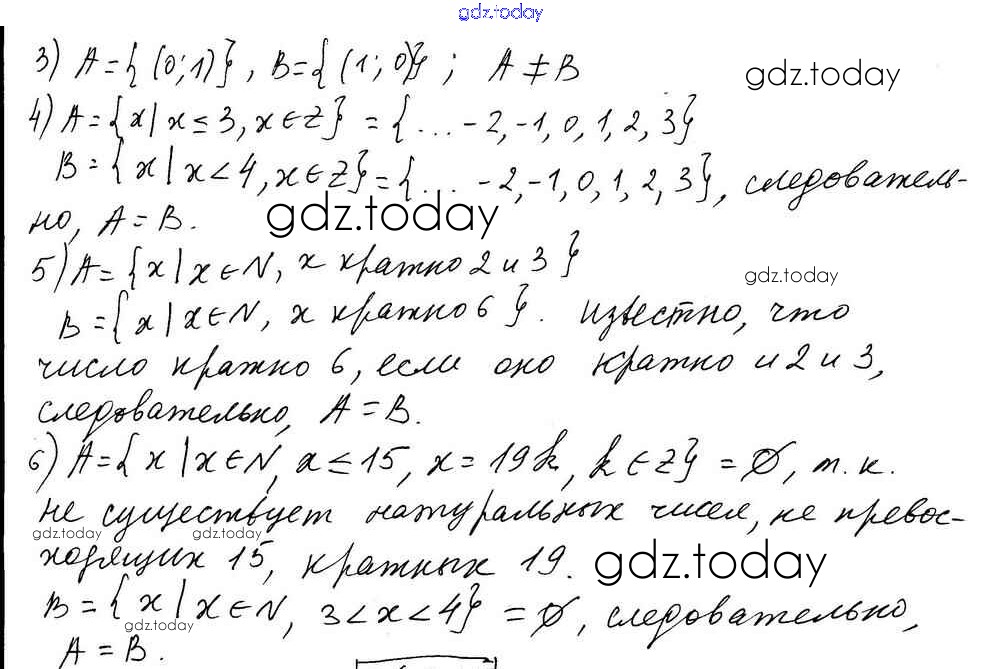 gdz.today
3) A={(0;1)}, B={(1;0)}; A≠B
gdz.today
4) A={x|x≤3, x∈Z} = {...-2,-1,0,1,2,3}
B={x|x<4, x∈Z}={...-2,-1,0,1,2,3}, следователь-
но, A=B.
gdz.today
5) A={x|x∈N, x кратно 2 и 3}
gdz.today
B={x|x∈N, x кратно 6}. Известно, что
число кратно 6, если оно кратно и 2 и 3,
следовательно, A=B.
6) A={x|x∈N, x≤15, x=19k, k∈Z} = ∅, т.к.
не существует натуральных чисел, не превос-
gdz.today gdz.today
ходящих 15, кратных 19.
gdz.today
B={x|x∈N, 3<x<4} = ∅, следовательно,
gdz.today
A=B.